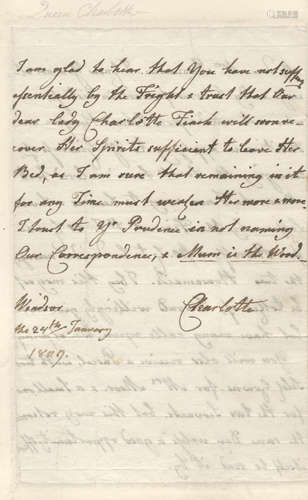 Queen Charlotte
I am glad to hear that You have not
essentially by the Fright & trust that Our
dear Lady Charlotte Finch will soon re-
cover Her Spirits sufficient to leave Her
Bed, as I am sure that remaining in it
for any Time must weaken Her more & more.
I trust to yr Prudence in not naming
Our Correspondence, & Mum is the Word.
Windsor
the 24th January
1809.
Charlotte